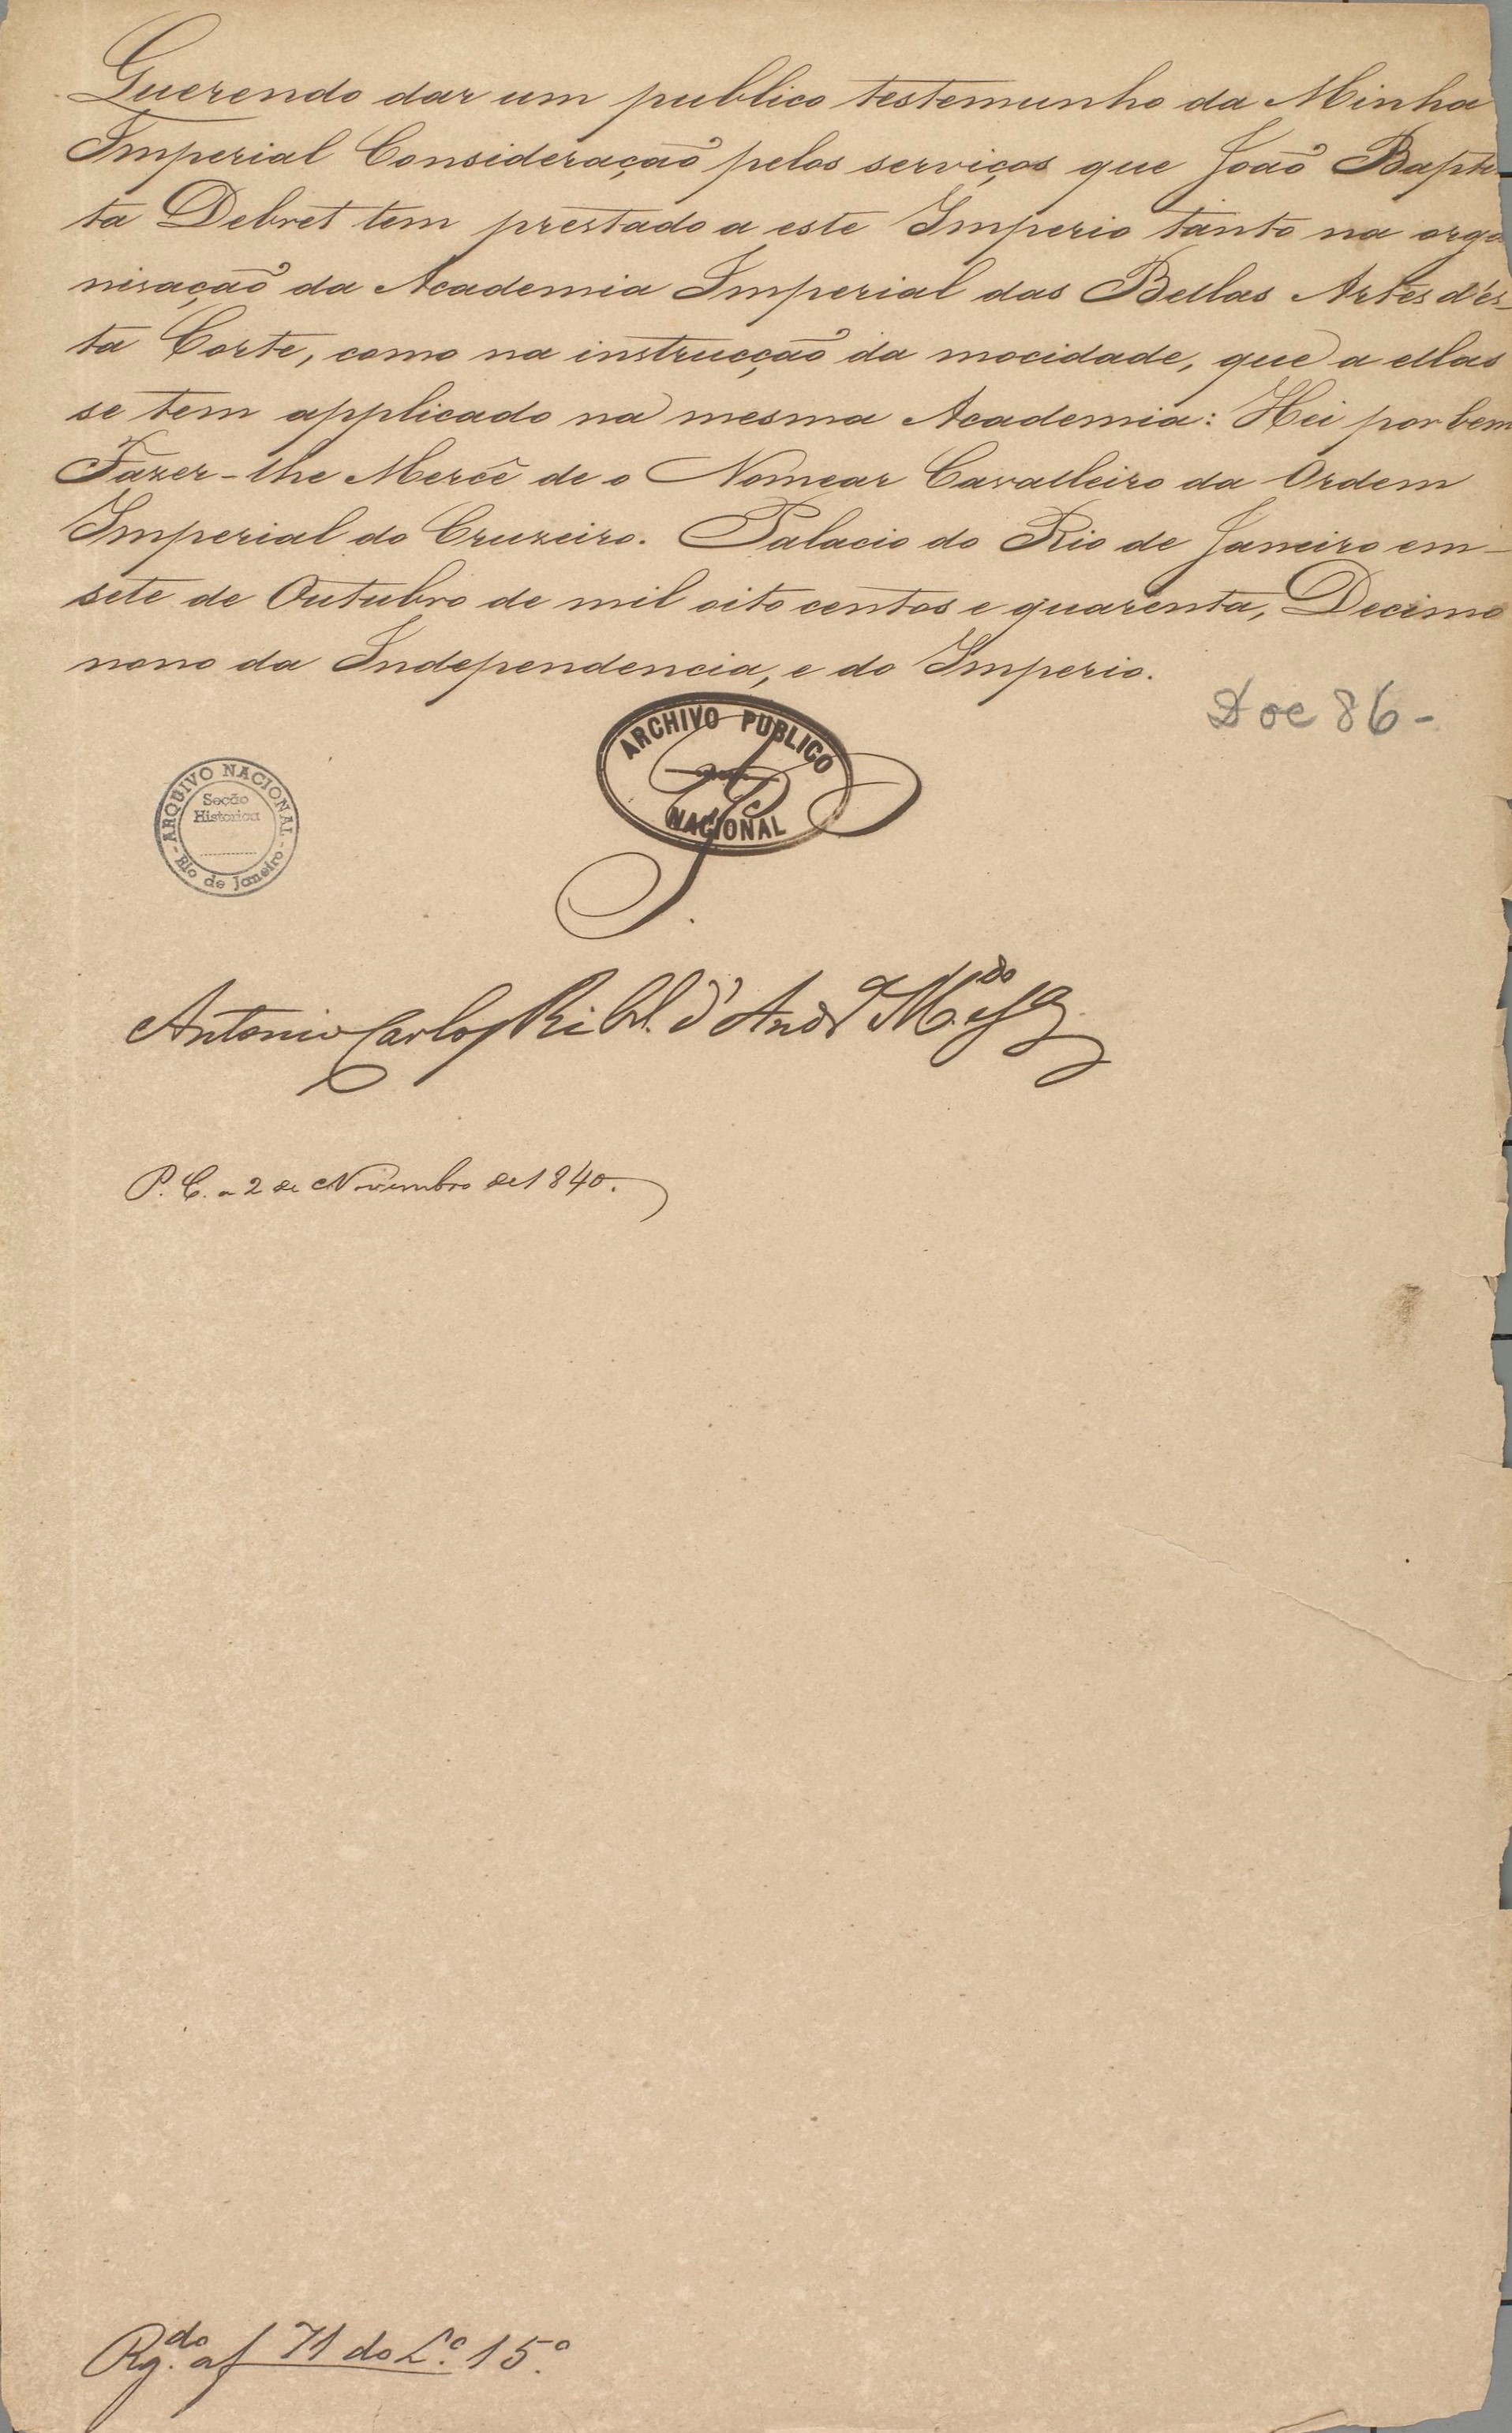 Querendo dar um publico testemunho da Minha
Imperial Consideração pelos serviços que João Baptis-
ta Debret tem prestado a este Imperio tanto na orga-
nisação da Academia Imperial das Bellas Artes d'es-
ta Corte, como na instrucção da mocidade, que a ellas
se tem applicado na mesma Academia: Hei por bem
Fazer-lhe Mercê de o Nomear Cavalleiro da Ordem
Imperial do Cruzeiro. Palacio do Rio de Janeiro em
sete de Outubro de mil oito centos e quarenta, Decimo
nono da Independencia, e do Imperio.
Doc 86-
ARCHIVO PUBLICO
NACIONAL
ARQUIVO NACIONAL
Secão
Historica
Rio de Janeiro
Antonio Carlos Rib.º d'And.ª M.do e S.ª
P. C. a 2 de Novembro de 1840.
Rg.do a f 71 do L.º 15.º